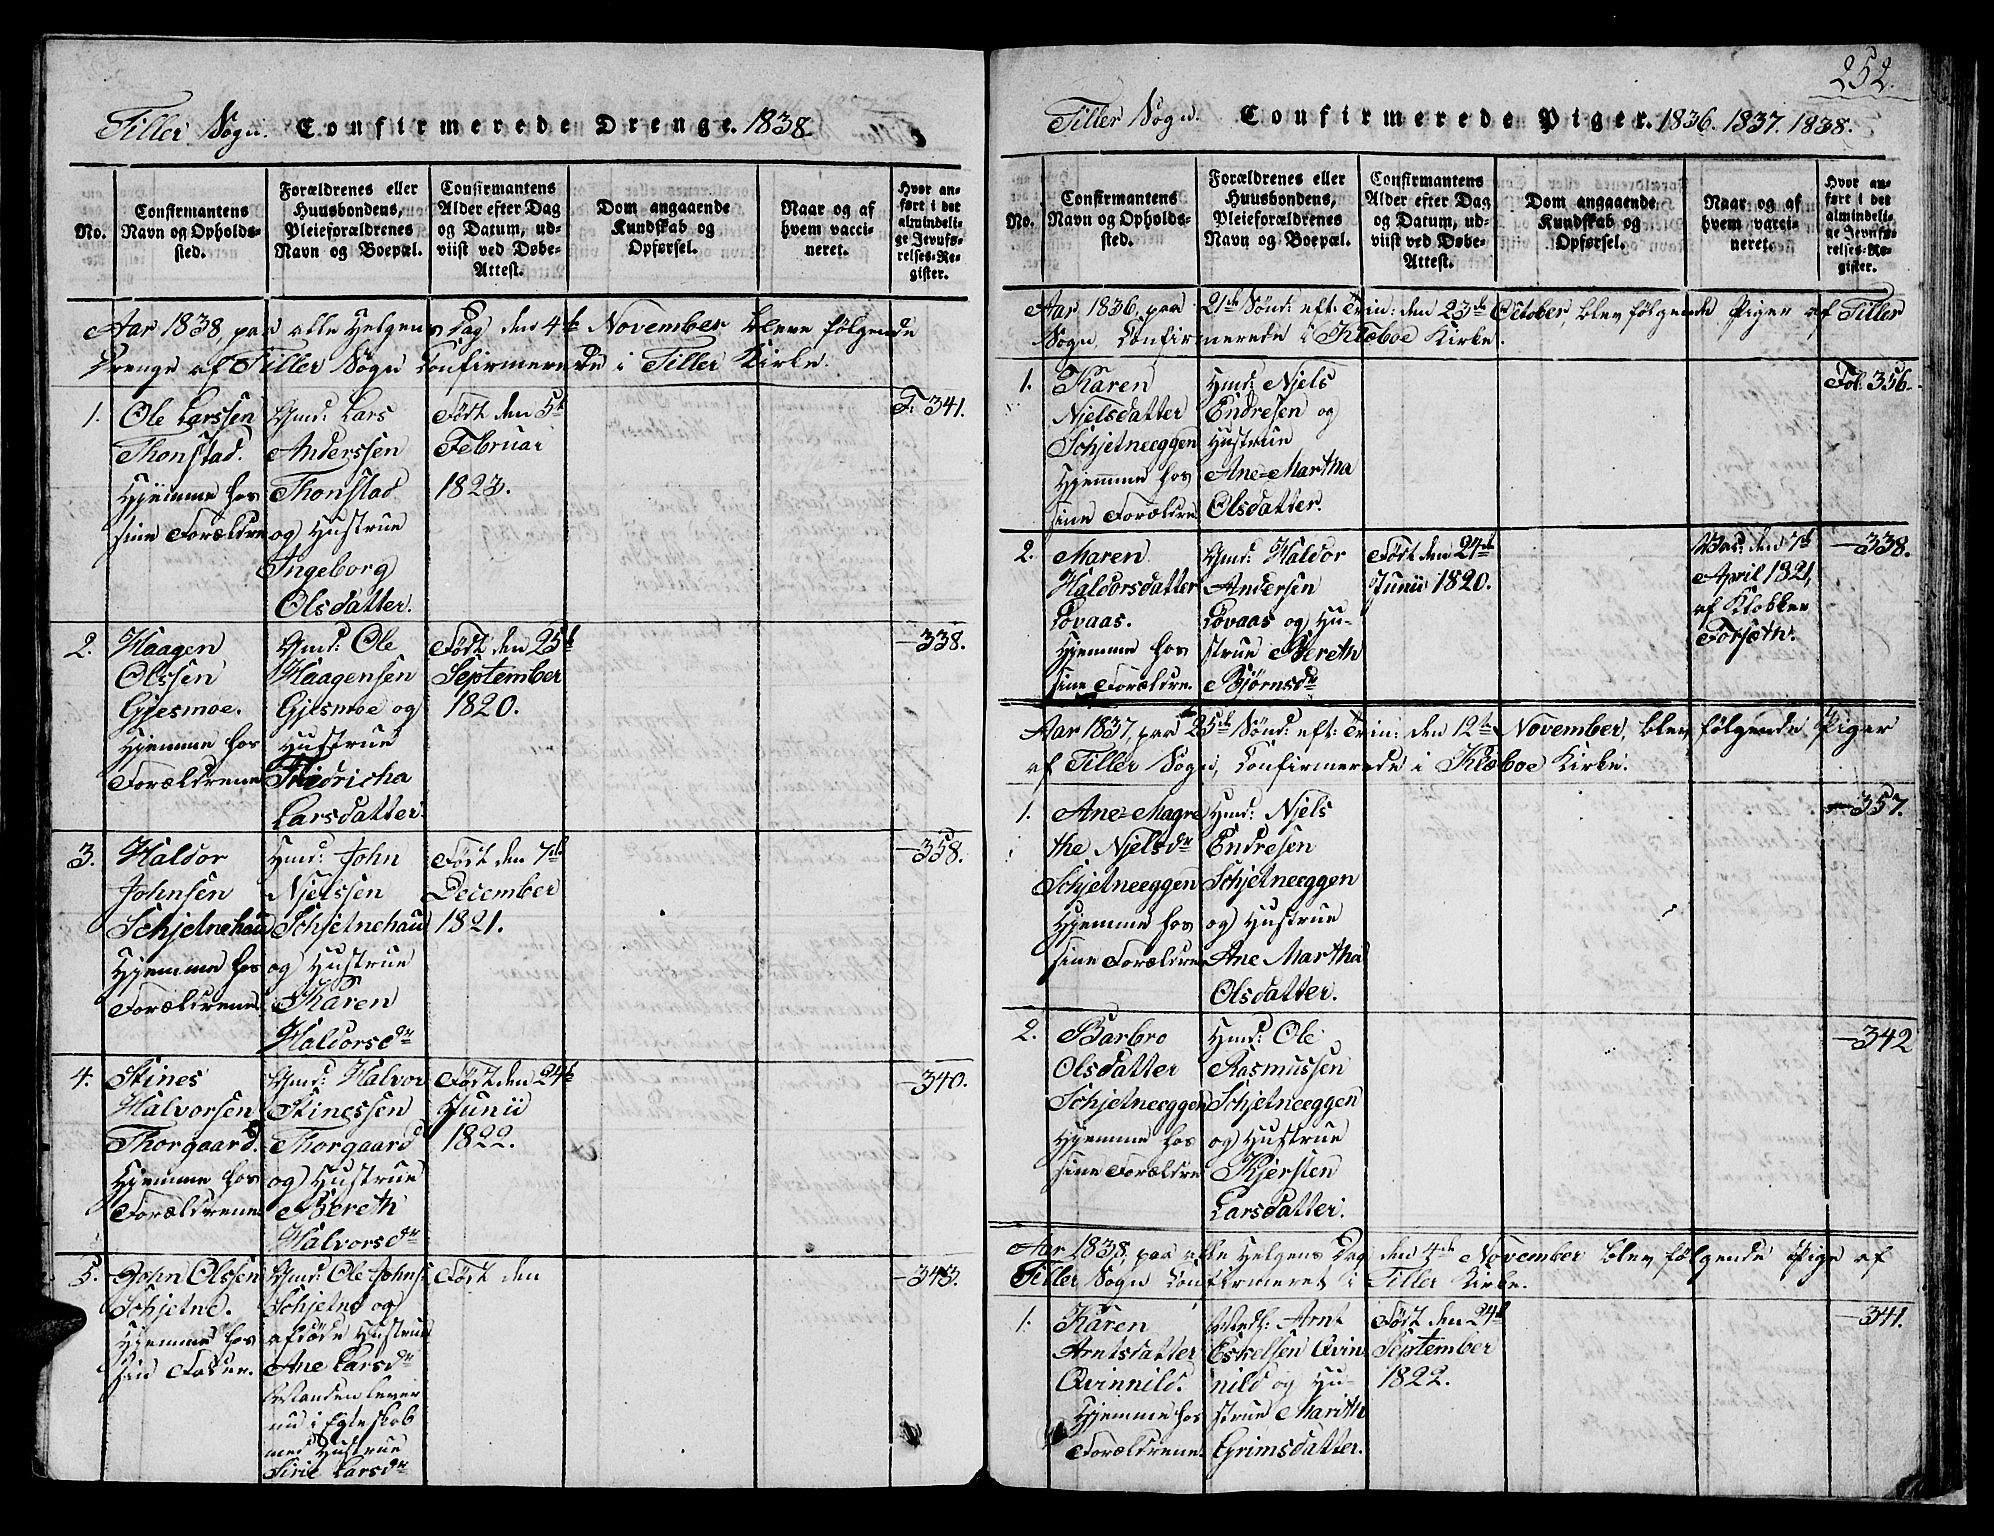 Tiller Sogn. Confirmerede Drenge. 1838.
No.
Confirmantens
Navn og Opholds-
sted.
Forældrenes eller
Huusbondens,
Pleieforældrenes
Navn og Boepæl.
Confirmantens
Alder efter Dag
og Datum, ud-
viist ved Døbe-
Attest.
Dom angaaende
Kundskab og
Opførsel.
Naar og af
hvem vacci-
neret.
Hvor an-
ført i det
almindeli-
ge Jevnfø-
relses-Re-
gister.
Aar 1838, paa alle Helgens Dag den 4de November bleve følgende
Drenge af Tiller Sogn Confirmerede i Tiller Kirke.
1.
Ole Larssen
Thonstad.
Hjemme hos
sine Forældre
Gmd: Lars
Anderssen
Thonstad
og Hustrue
Ingeborg
Olsdatter.
Født den 5t
Februar
1823.
F. 341.
2.
Haagen
Olssen
Gjesmoe.
Hjemme hos
Forældrene
Gmd: Ole
Haagensen
Gjesmoe og
Hustrue
Fridricha
Larsdatter.
Født den 25t
September
1820.
—338.
3.
Haldor
Johnsen
Schjetnehau
Hjemme hos
Forældrene.
Hmd: John
Njelssen
Schjetnehau
og Hustrue
Karen
Haldorsdr
Født den 7de
December
1821.
—358.
4.
Stines
Halvorsen
Thorgaard.
Hjemme hos
Forældrene.
Gmd: Halvor
Stinessen
Thorgaard
og Hustrue
Bereth
Halvorsdr
Født den 24t
Junii
1822.
—340.
5.
John Olssen
Schjetne.
Hjemme hos
sin Fader.
Gmd: Ole Johns:
Schjetne og
afdøde Hustrue
Ane Larsdr
Manden lever
nu i Egteskab
med Hustrue
Sirie Larsdr
Født den
—343.
252.
Tiller Sogn. Confirmerede Piger. 1836. 1837. 1838.
No.
Confirmantens
Navn og Opholds-
sted.
Forældrenes eller
Huusbondens,
Pleieforældrenes
Navn og Boepæl.
Confirmantens
Alder efter Dag
og Datum, ud-
viist ved Døbe-
Attest.
Dom angaaende
Kundskab og
Opførsel.
Naar og af
hvem vacci-
neret.
Hvor an-
ført i det
almindeli-
ge Jevnfø-
relses-Re-
gister.
Aar 1836, paa 21de Sønd: eft: Trin: den 23de October, blev følgende Piger af Tiller
Sogn, Confirmerede i Klæboe Kirke.
1.
Karen
Njelsdatter
Schjetneeggen
Hjemme hos
sine Forældre
Hmd: Njels
Endresen og
Hustrue
Ane-Martha
Olsdatter.
Fol. 356.
2.
Maren
Haldorsdatter
Løvaas.
Hjemme hos
sine Forældre.
Gmd: Haldor
Andersen
Løvaas og Hu-
strue Bereth
Bjørnsdr
Født den 24de
Junii 1820.
Vac: den 7de
April 1821,
af Klokker
Forseth.
—338.
Aar 1837, paa 25de Sønd: eft: Trin: den 12te November, blev følgende Piger
af Tiller Sogn, Confirmerede i Klæboe Kirke.
1.
Ane-Magre
the Njelsdr
Schjetneeggen
Hjemme hos
sine Forældre
Hmd: Njels
Endresen
Schjetneeggen
og Hustrue
Ane Martha
Olsdatter.
—357.
2.
Barbro
Olsdatter
Schjetneeggen
Hjemme hos
sine Forældre
Hmd: Ole
Rasmussen
Schjetneeggen
og Hustrue
Kjersten
Larsdatter.
—342
Aar 1838, paa alle Helgens Dag den 4de November blev følgende Pige af
Tiller Sogn Confirmeret i Tiller Kirke.
1.
Karen
Arntsdatter
Qvinnild.
Hjemme hos
Forældrene.
Arnt
Eskelsen Qvin
nild og Hu-
strue Marith
Grimsdatter.
Født den 24d
September
1822.
—341.